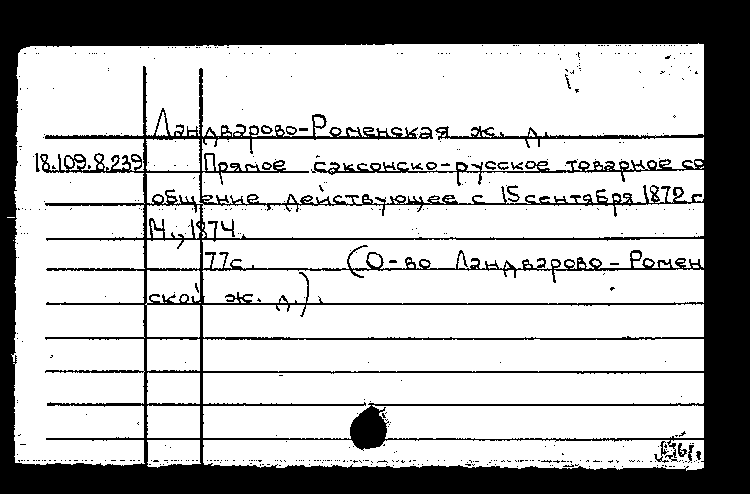 Ландварово-Роменская ж. д.
18.109.8.239 Прямое саксонско-русское товарное со
общение, действующее с 15 сентября 1872 г.
М., 1874.
77с. (О-во Ландварово-Ромен
ской ж. д.).